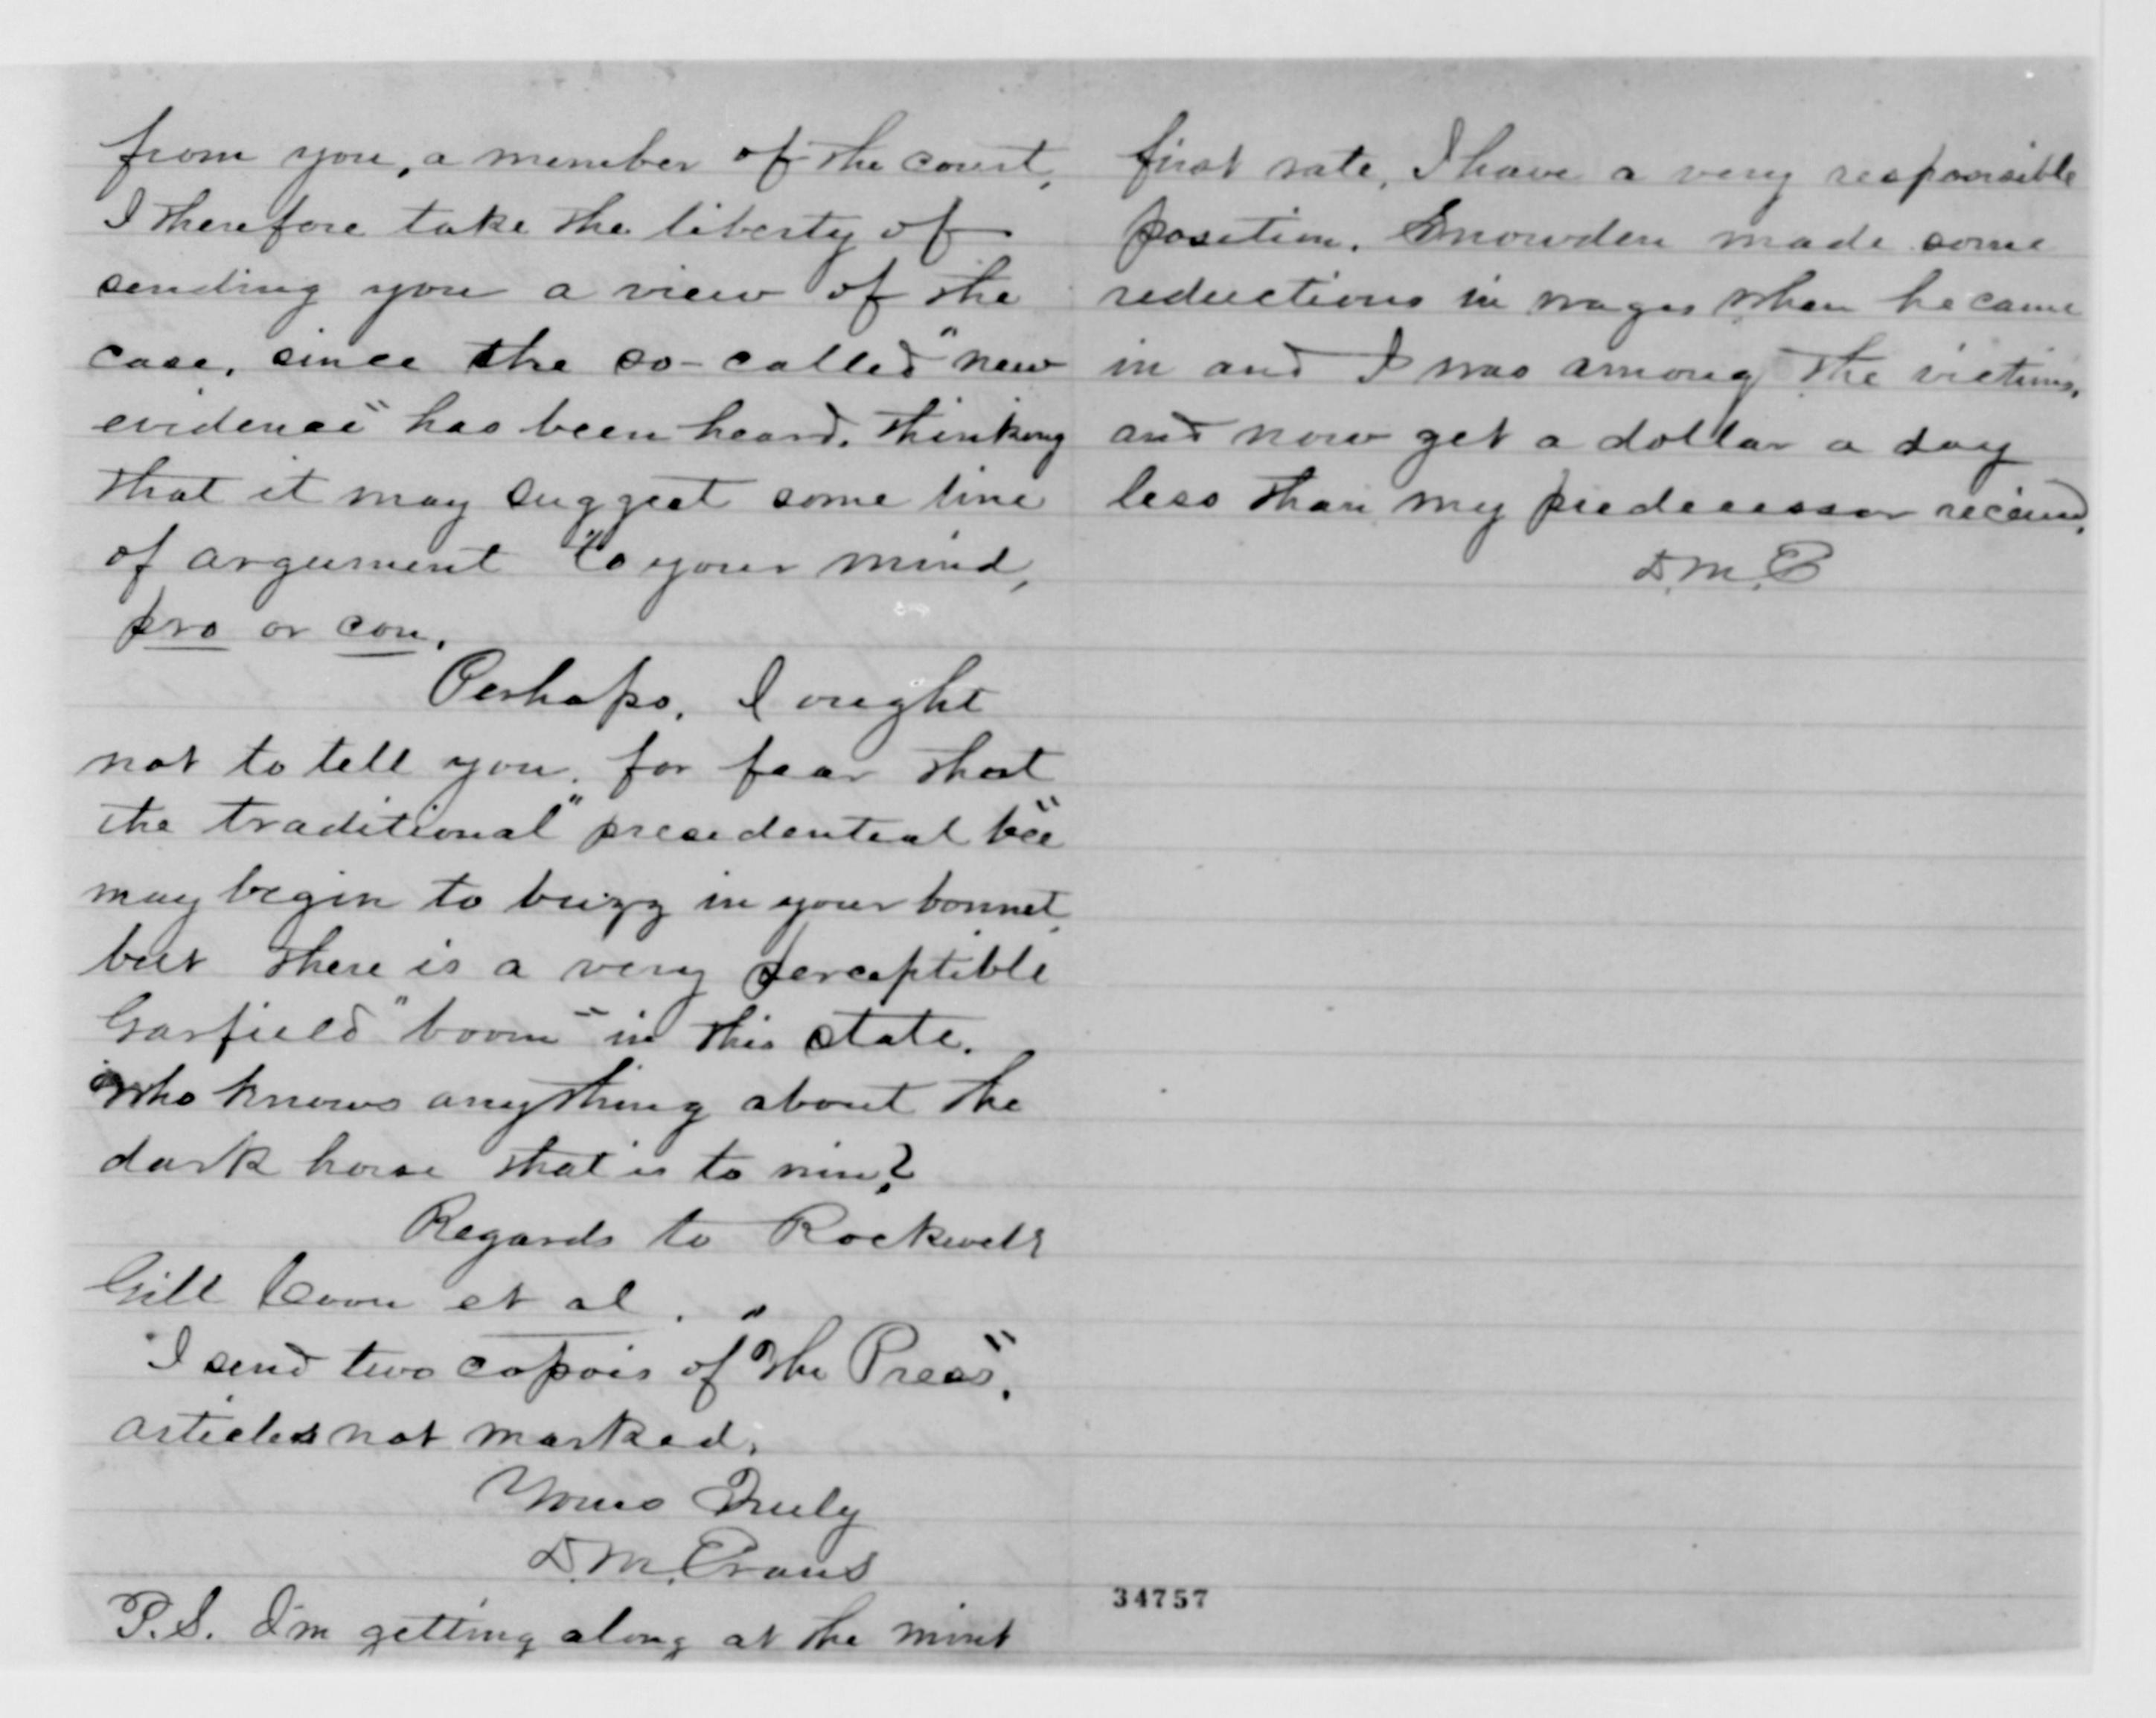 from you, a member of the court,
I therefore take the liberty of
sending you a view of the
case, since the so-called "new
evidence" has been heard, thinking
that it may suggest some line
of argument to your mind,
pro or con.
Perhaps, I ought
not to tell you, for fear that
the traditional "presedential bee"
may begin to buzz in your bonnet,
but there is a very perceptible
Garfield "boom" in this state.
Who knows anything about the
dark horse that is to win?
Regards to Rockwell
Gill Coon et al.
I send two copois of "The Press".
articles not marked.
Yours Truly
D. M. Evans
P.S. I'm getting along at the mint
first rate, I have a very responsible
position. Snowden made some
reductions in wages when he came
in and I was among the victims,
and now get a dollar a day
less than my predecessor received.
D. M. E
34757